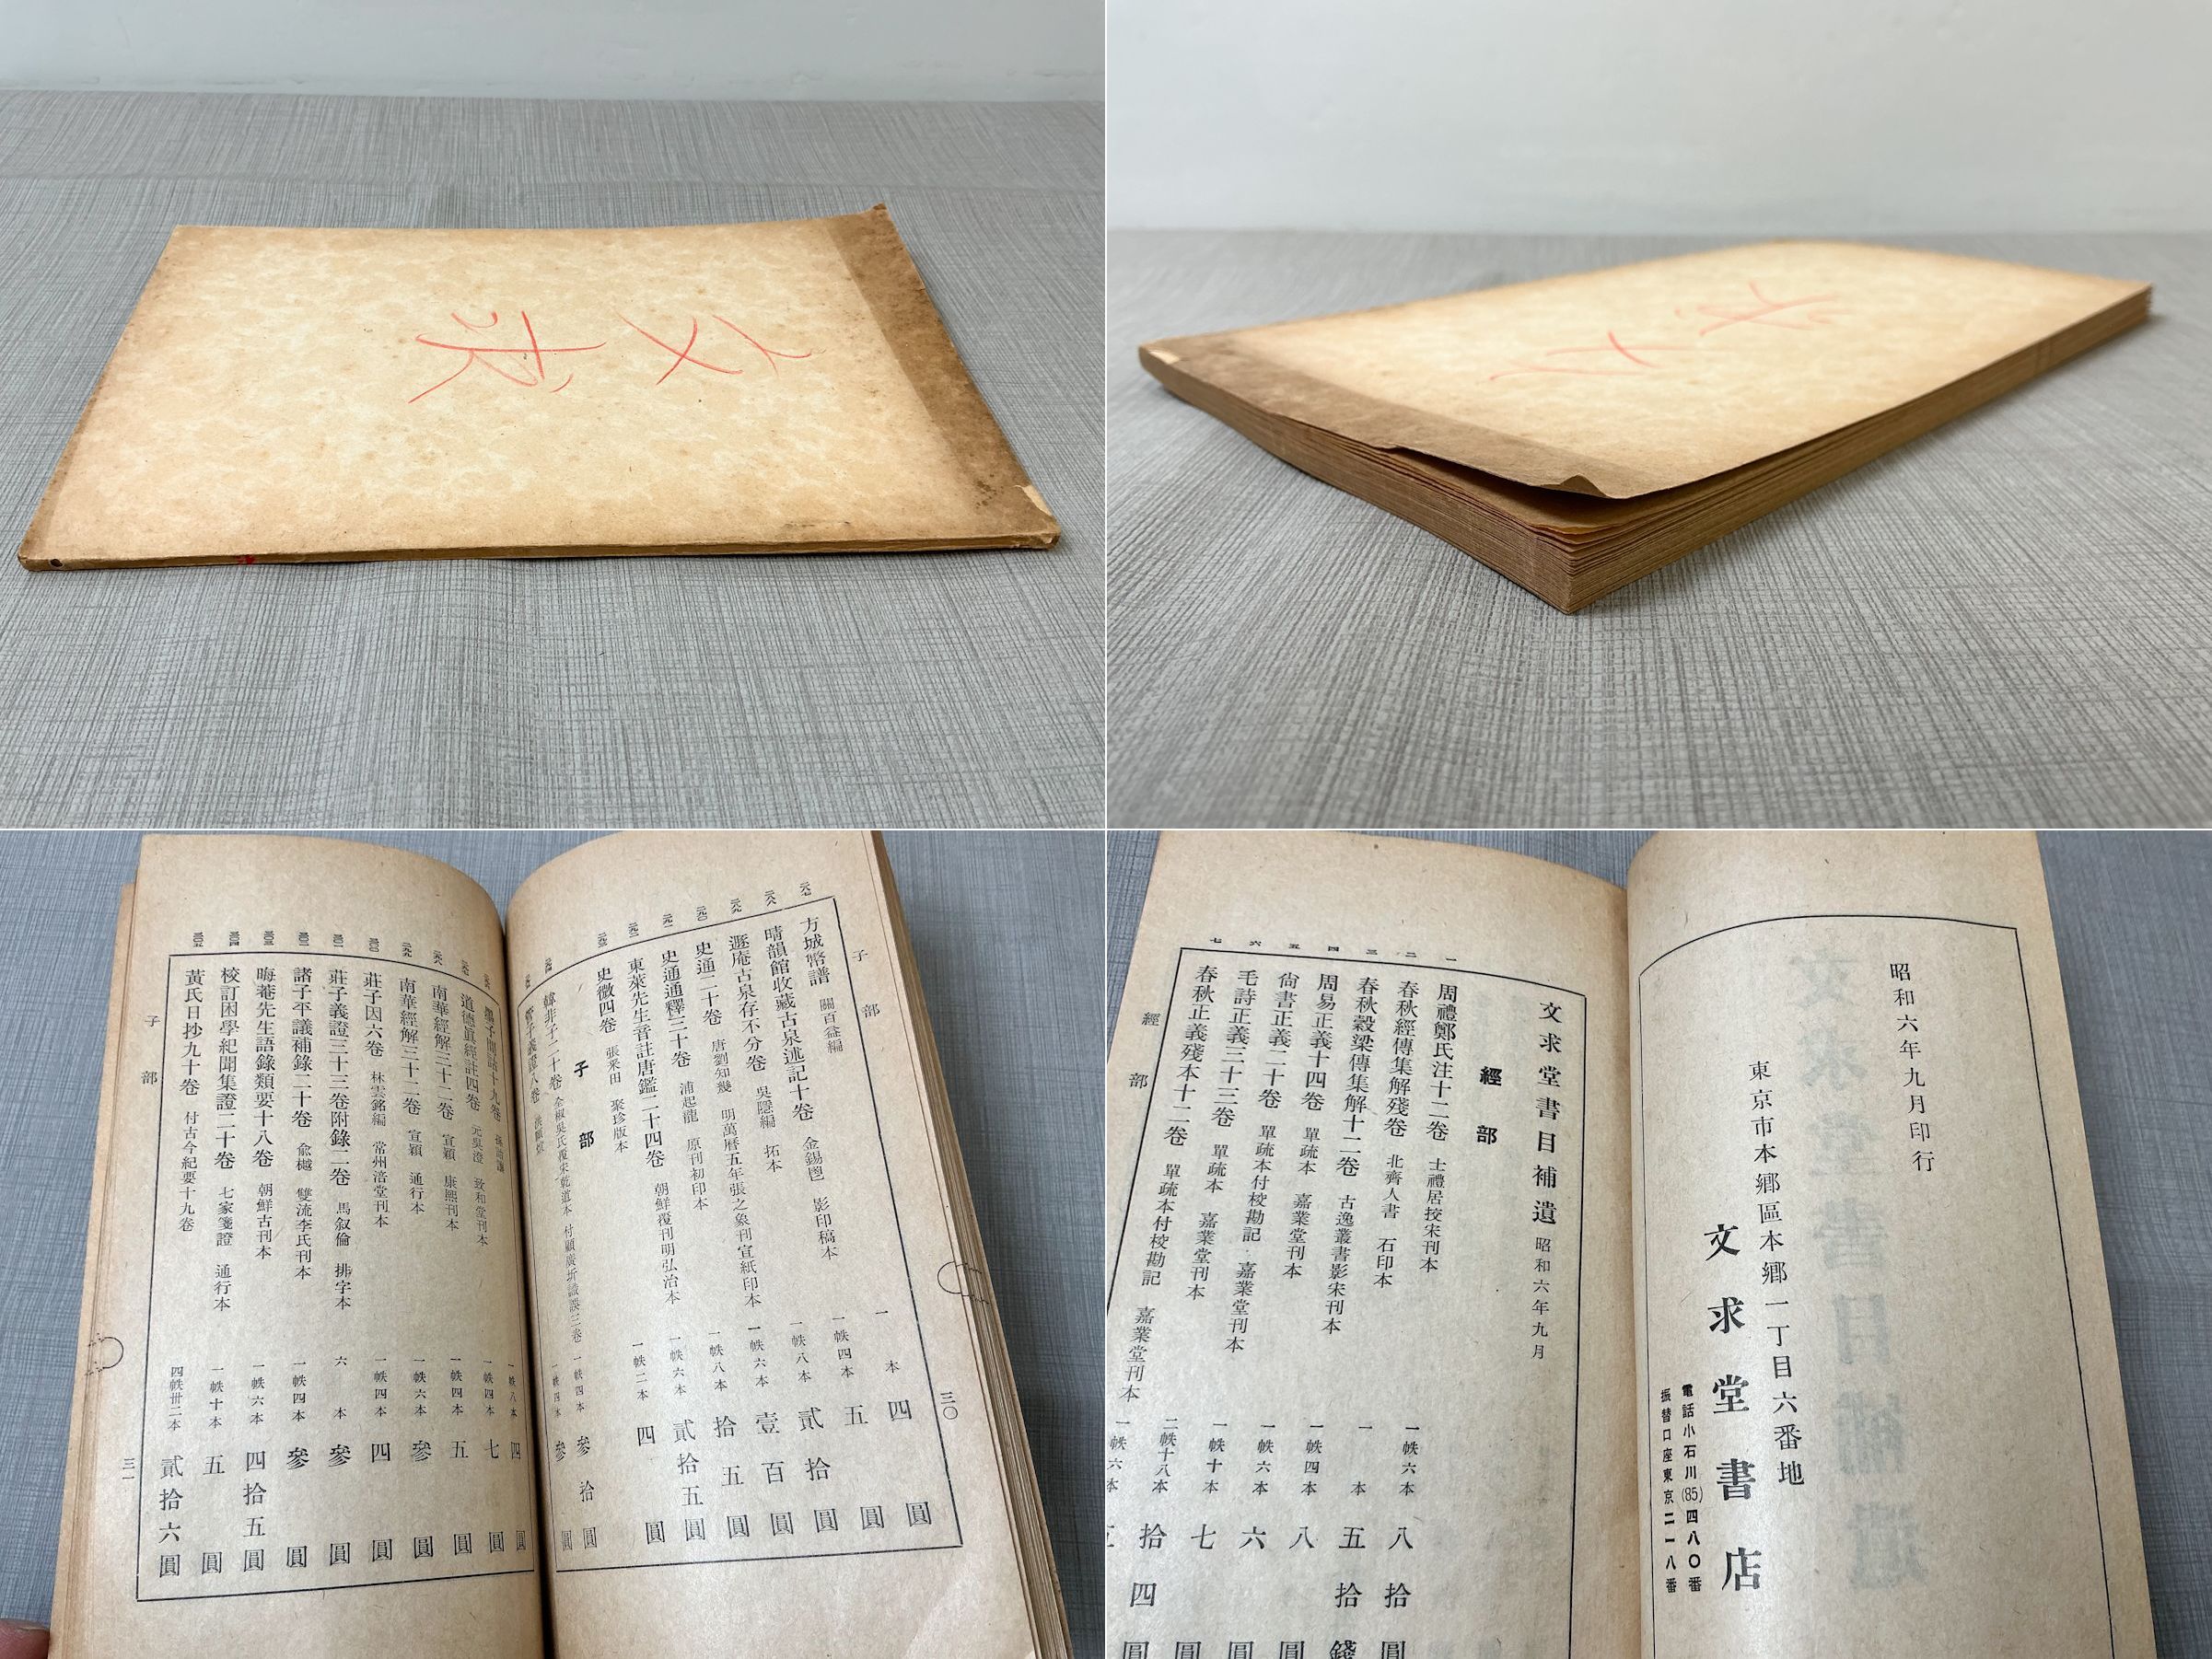 文求
文求
子部
三〇
方城幣譜 關百益編 一本 四圓
晴韻館收藏古泉述記十卷 金錫鬯 影印稿本 一帙四本 五圓
遯庵古泉存不分卷 吳隱編 拓本 一帙八本 貳拾圓
史通二十卷 唐劉知幾 明萬曆五年張之象刊宣紙印本 一帙六本 壹百圓
史通通釋二十卷 浦起龍 原刊初印本 一帙八本 拾五圓
東萊先生音註唐鑑二十四卷 朝鮮覆刊明弘治本 一帙六本 貳拾五圓
史微四卷 張釆田 聚珍版本 一帙二本 四圓
子部
韓非子二十卷 全椒吳氏覆宋乾道本 付顧廣圻識誤三卷 一帙四本 參拾圓
一帙四本 參圓
一帙八本 四圓
道德眞經註四卷 元吳澄 致和堂刊本 一帙四本 七圓
南華經解三十三卷 宣穎 康熙刊本 一帙四本 五圓
南華經解三十三卷 宣穎 通行本 一帙六本 參圓
莊子因六卷 林雲銘編 常州培堂刊本 一帙四本 四圓
莊子義證三十三卷附錄二卷 馬叙倫 排字本 六本 參圓
諸子平議補錄二十卷 兪樾 雙流李氏刊本 一帙四本 參圓
晦菴先生語錄類要十八卷 朝鮮古刊本 一帙六本 四拾五圓
校訂困學紀聞集證二十卷 七家箋證 通行本 一帙十本 五圓
黃氏日抄九十卷 付古今紀要十九卷 四帙卅二本 貳拾六圓
子部
三一
昭和六年九月印行
東京市本鄉區本鄉一丁目六番地
文求堂書店
電話小石川(85)四八〇番
振替口座東京二一八番
文求堂書目補遺 昭和六年九月
經部
一 周禮鄭氏注十二卷 士禮居挍宋刊本 一帙六本 八拾圓
二 春秋經傳集解殘卷 北齊人書 石印本 一本 五拾錢
三 春秋穀梁傳集解十二卷 古逸叢書影宋刊本 一帙四本 八圓
四 周易正義十四卷 單疏本 嘉業堂刊本 一帙六本 六圓
五 尙書正義二十卷 單疏本付校勘記 嘉業堂刊本 一帙十本 七圓
六 毛詩正義三十三卷 單疏本 嘉業堂刊本 二帙十八本 拾四圓
七 春秋正義殘本十二卷 單疏本付校勘記 嘉業堂刊本 一帙六本
經部